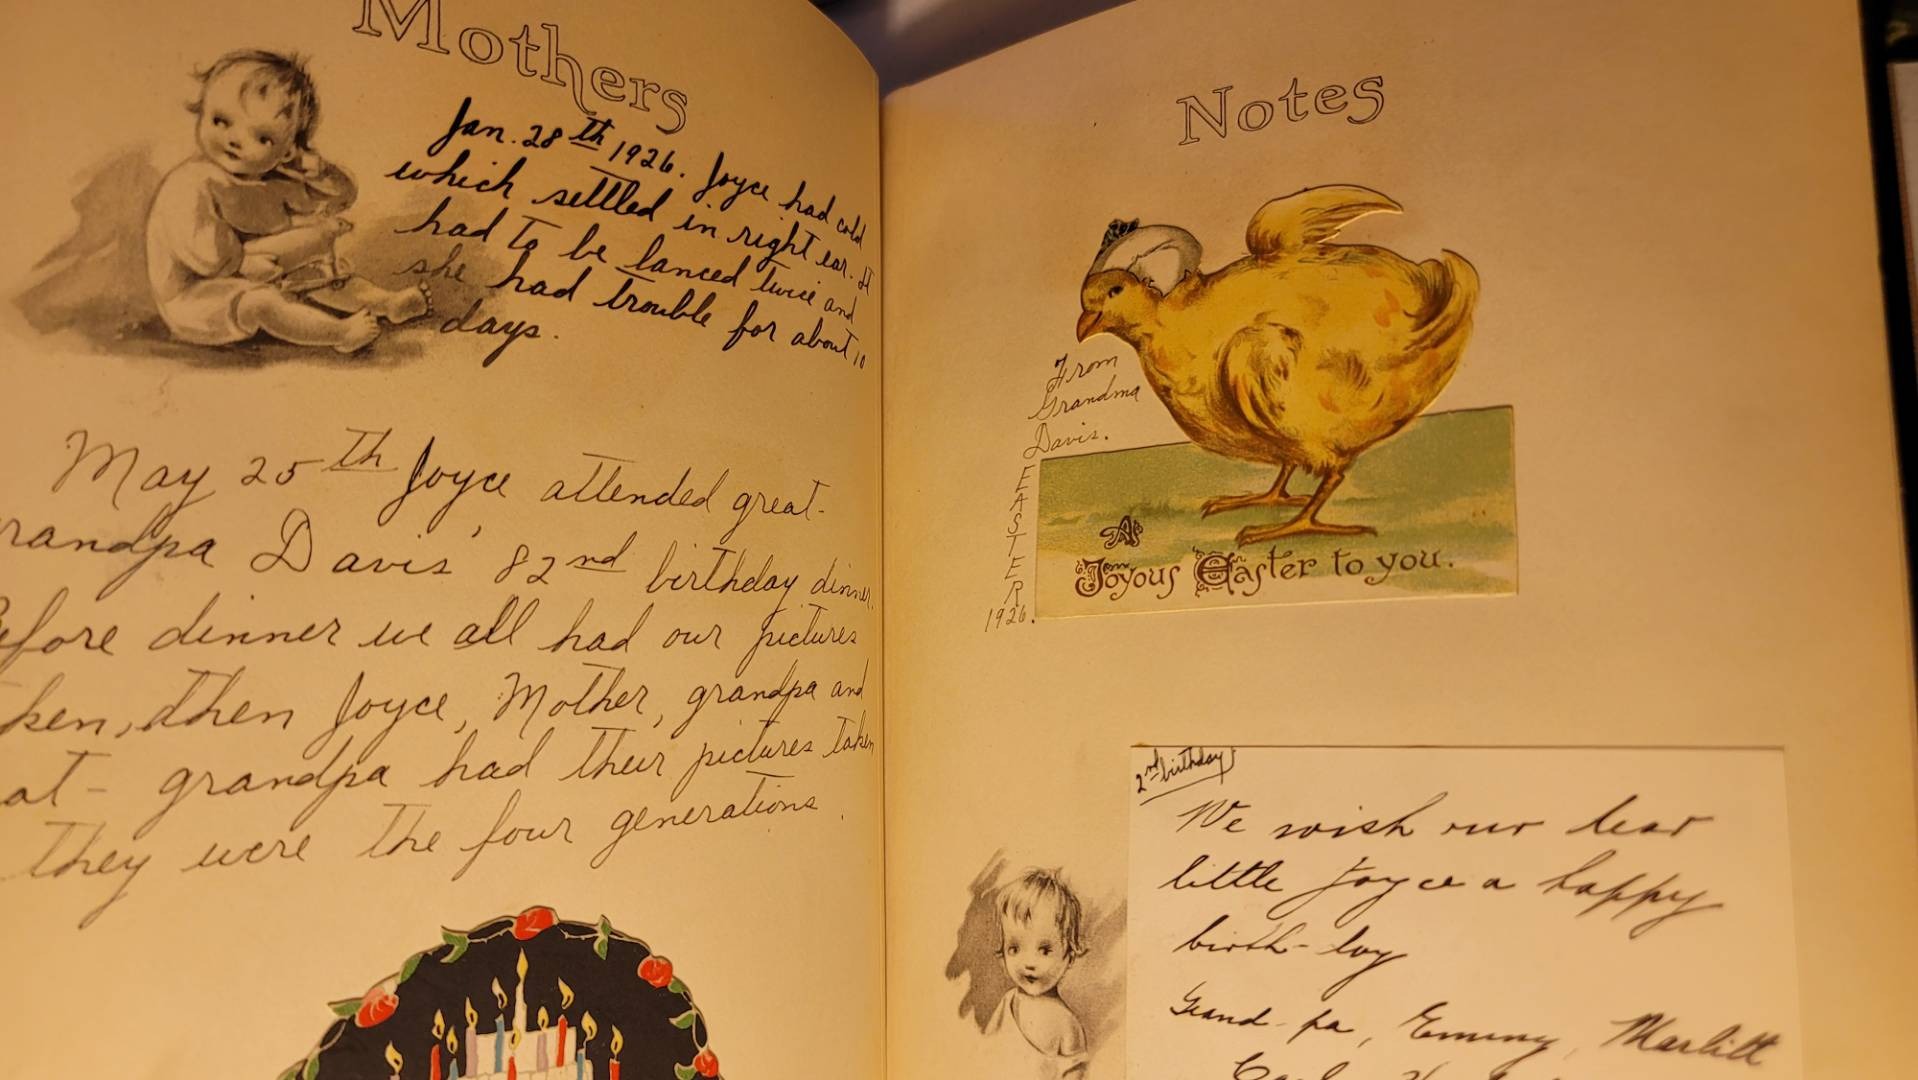 Mothers
Jan. 28th 1926. Joyce had cold
which settled in right ear. It
had to be lanced twice and
she had trouble for about 10
days.
May 25th Joyce attended great-
randpa Davis' 82nd birthday dinner.
Before dinner we all had our pictures
ken, then Joyce, Mother, grandpa and
at- grandpa had their pictures taken
they were the four generations.
Notes
From
Grandma
Davis.
EASTER
1926.
A
Joyous Easter to you.
2nd birthday
We wish our dear
little Joyce a happy
birth-day
Grand-pa, Emmy,